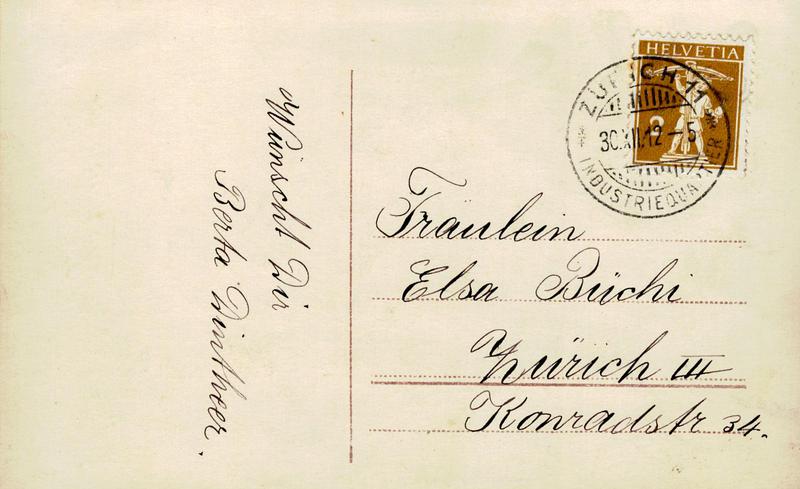 Wünscht Dir
Berta Dintheer.
HELVETIA
2
ZÜRICH 11
30.XII.12 – 5
INDUSTRIEQUARTIER
Fräulein
Elsa Büchi
Zürich III
Konradstr 34.